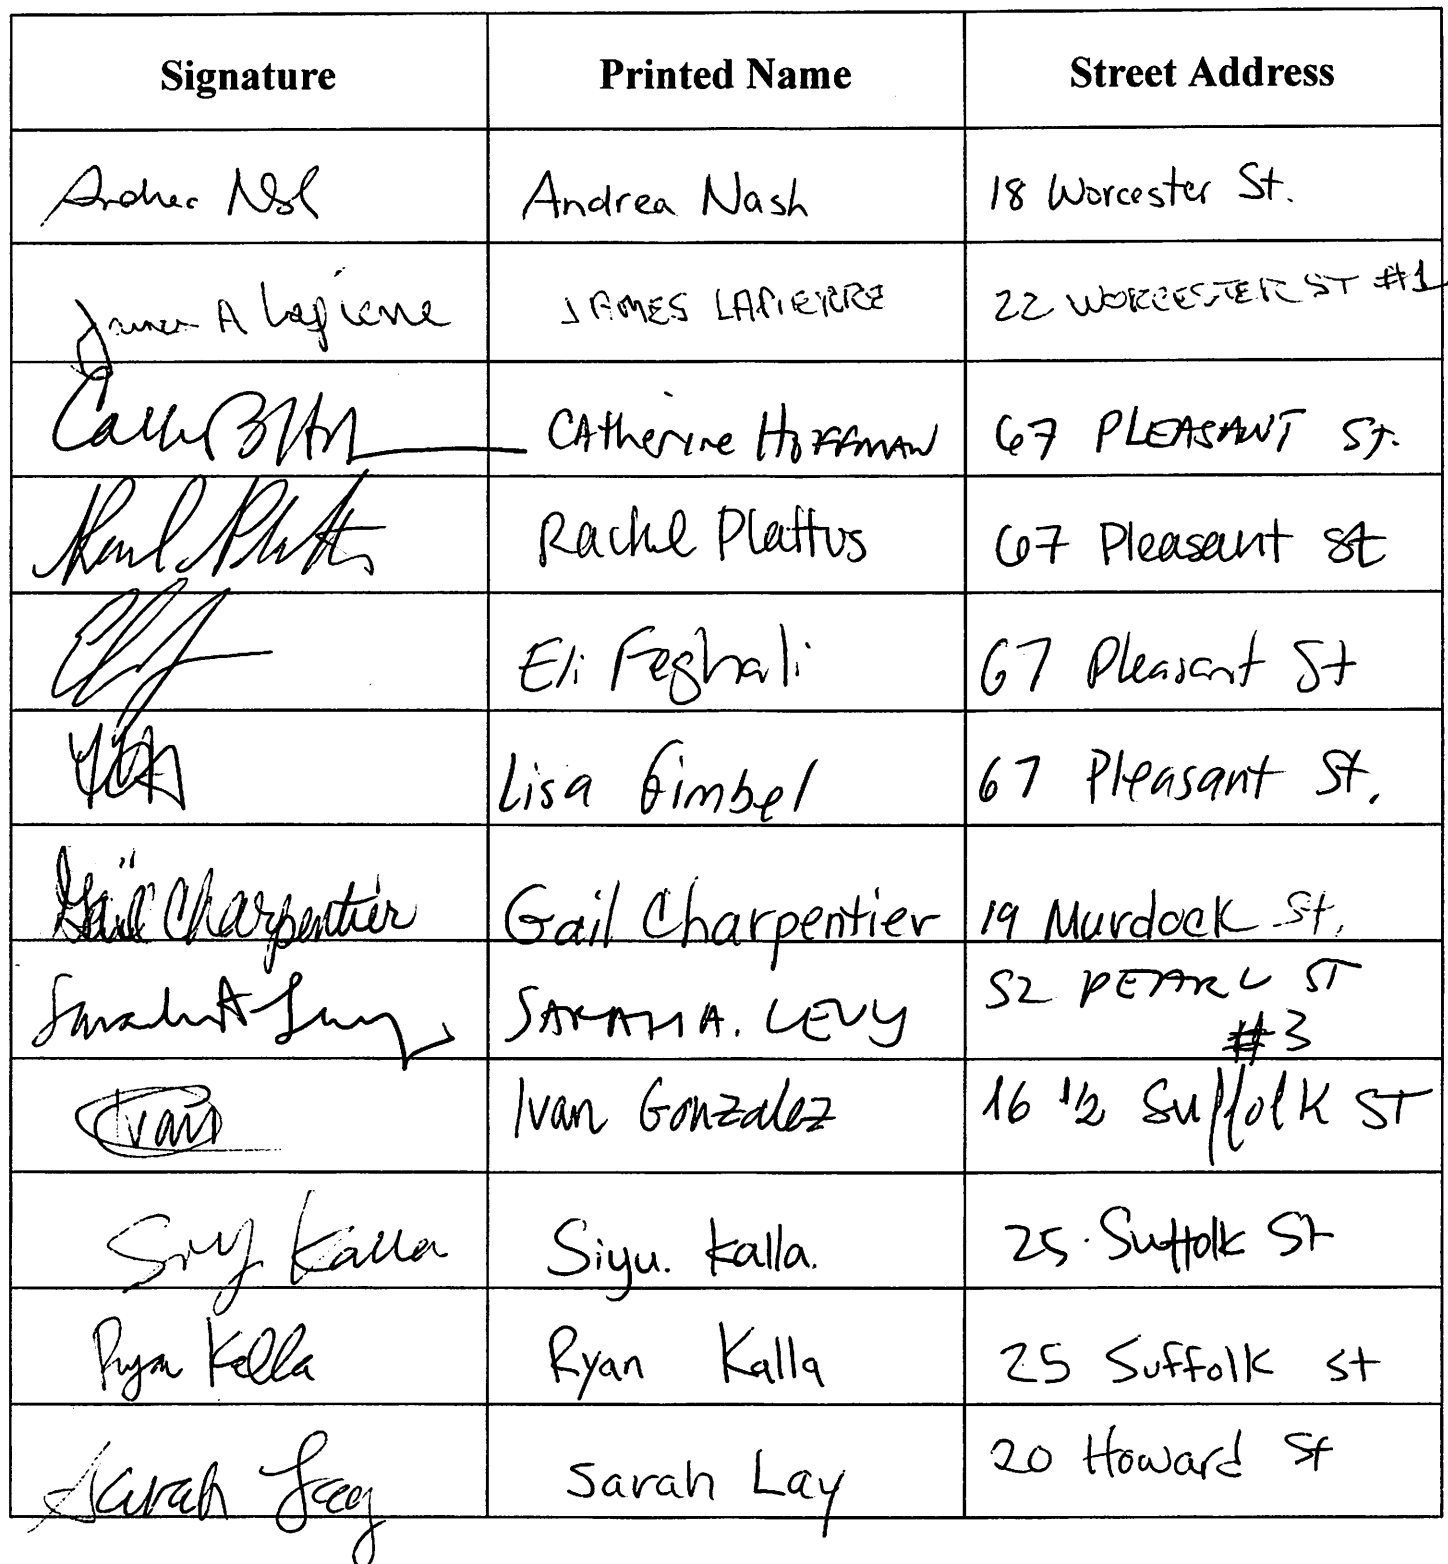 Signature Printed Name Street Address
Andrea Nash 18 Worcester St.
James A Lapierre JAMES LAPIERRE 22 WORCESTER ST #1
CAtherine HOFFMAN 67 PLEASANT St.
Rachel Plattus 67 Pleasant St
Eli Feghali 67 Pleasant St
Lisa Gimbel 67 Pleasant St.
Gail Charpentier Gail Charpentier 19 Murdock St.
SARAH A. LEVY 52 PEARL ST
#3
Ivan Ivan Gonzalez 16 1/2 Suffolk ST
Siyu. Kalla. 25 Suffolk St
Ryan Kalla Ryan Kalla 25 Suffolk St
Sarah Lay Sarah Lay 20 Howard St